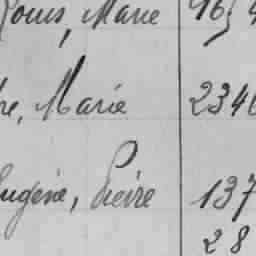 Louis, Marie 16} 4
re, Marie 2346
Eugène, Pierre 137
28